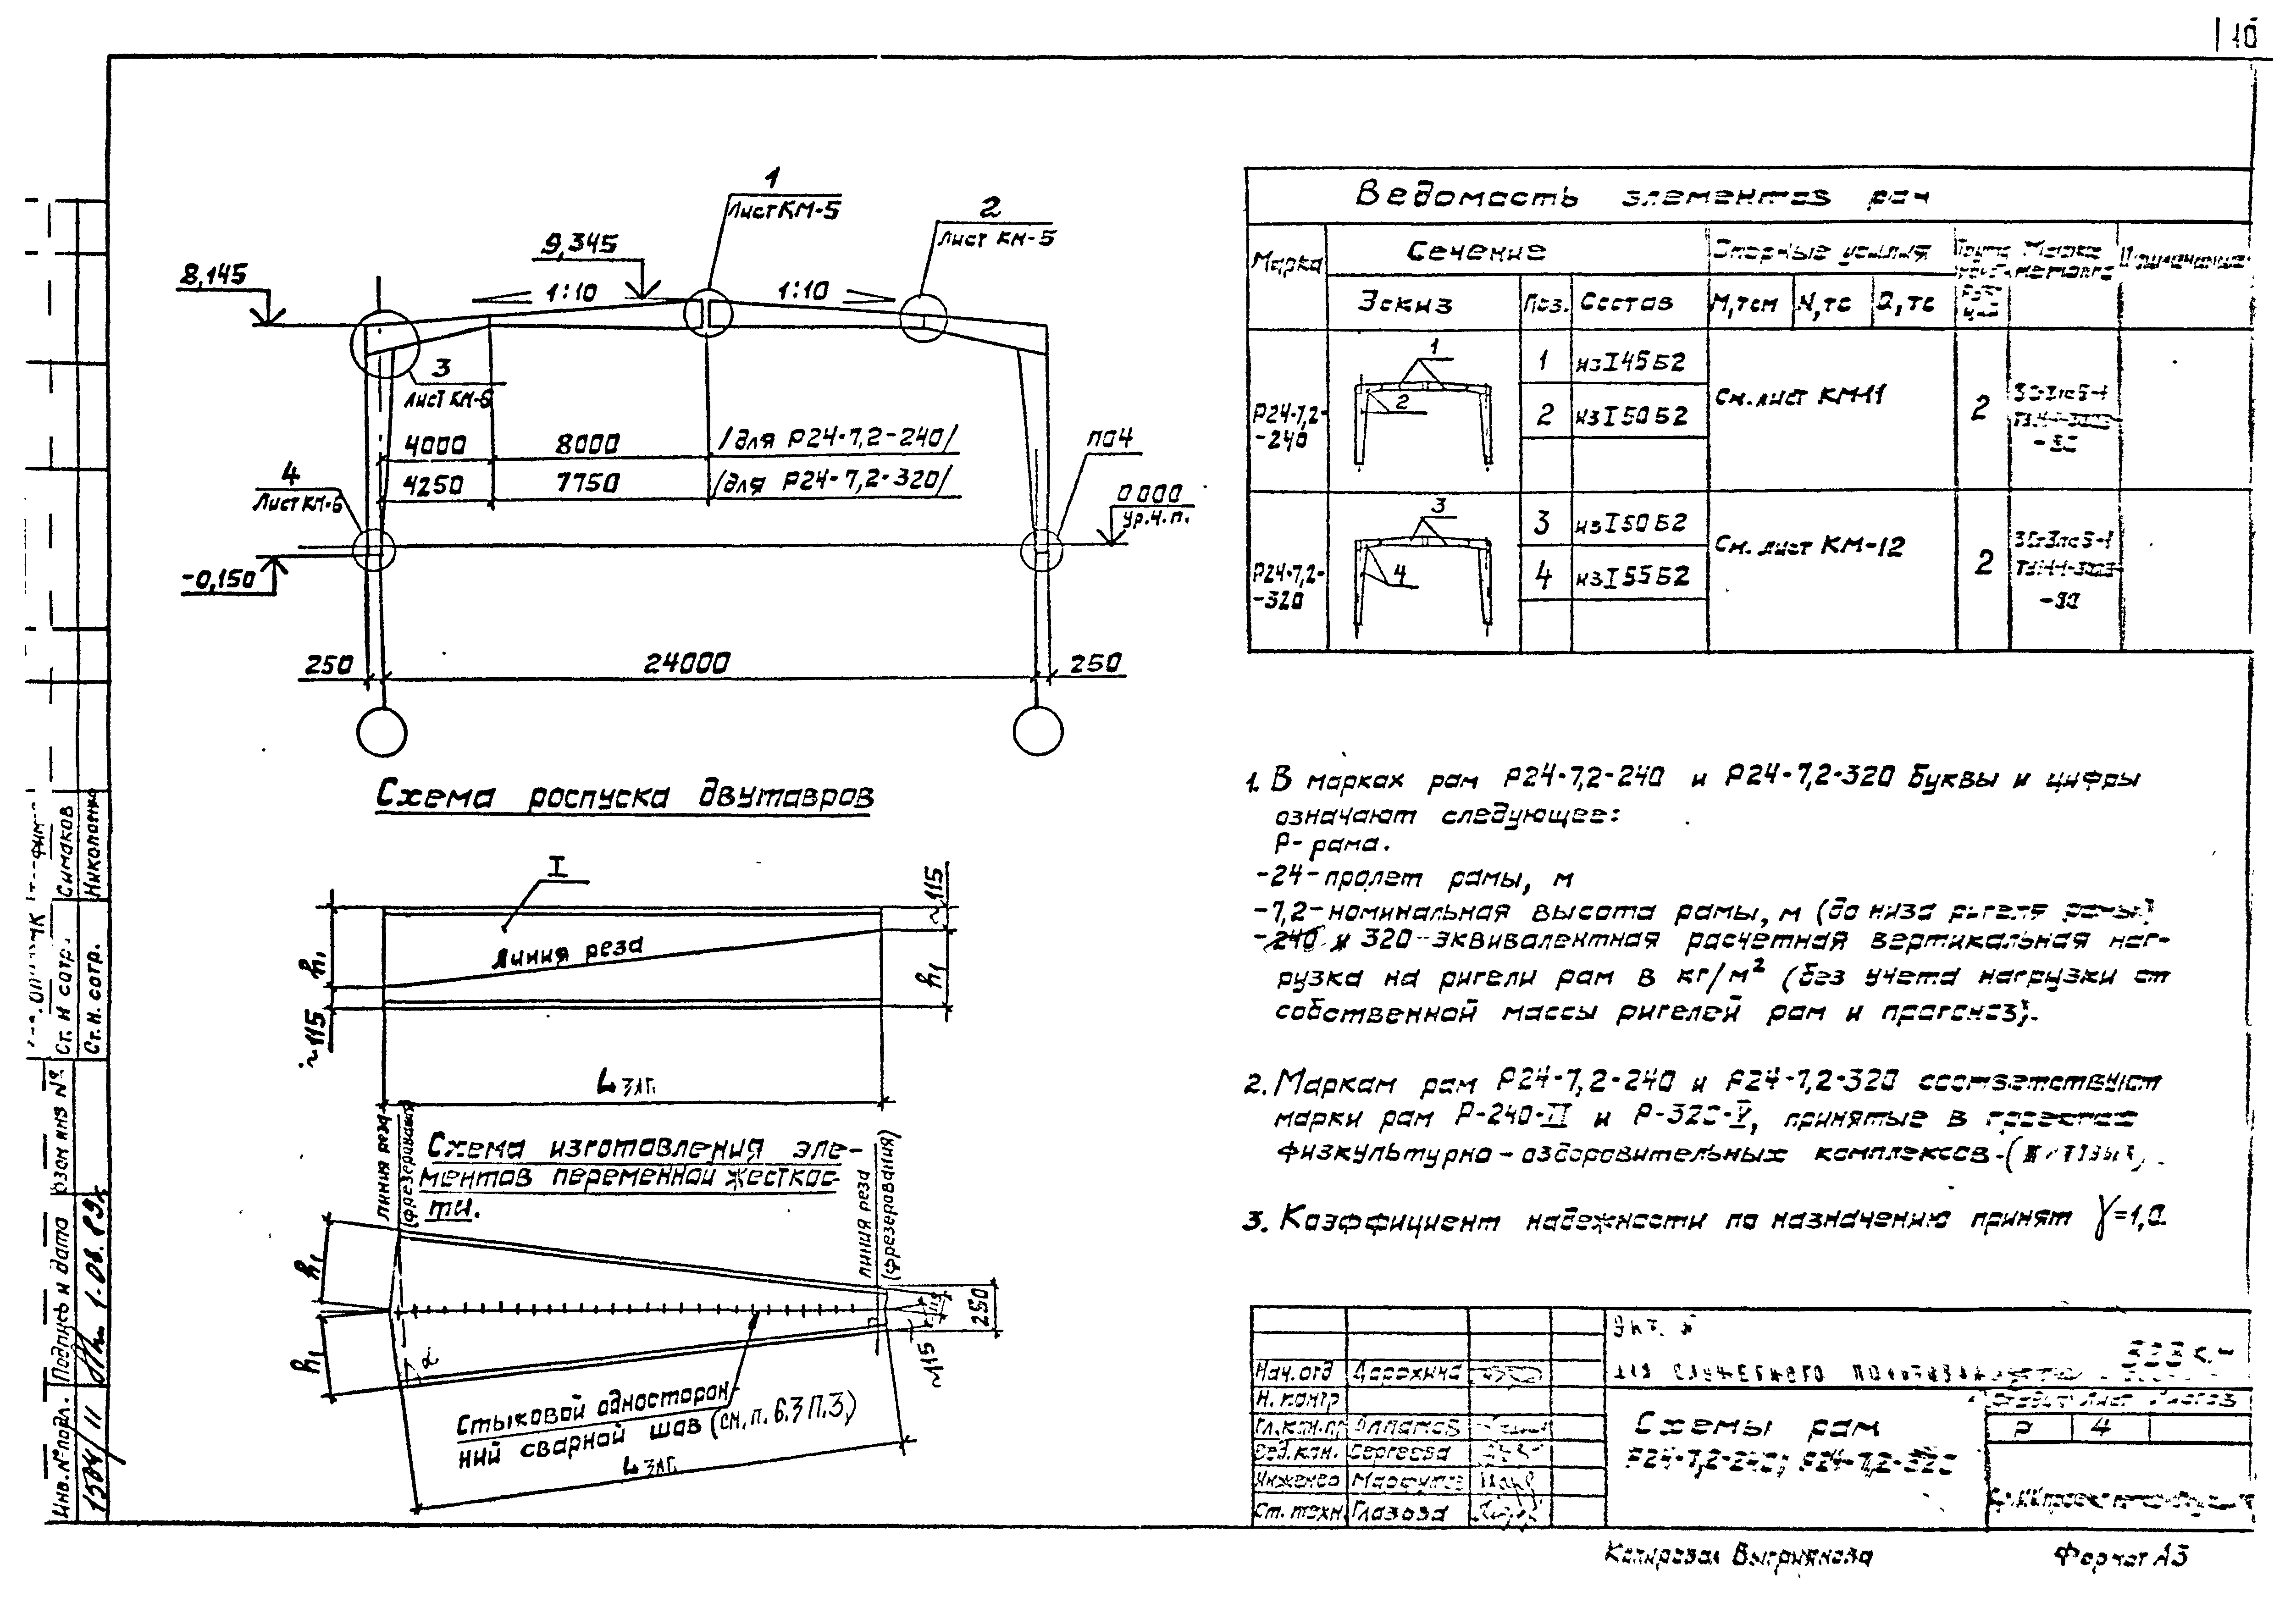 10
1
Лист КМ-5
2
Лист КМ-5
9,345
8,145
1:10
1:10
3
Лист КМ-6
4000
8000
/для Р24-7,2-240/
4250
7750
/для Р24-7,2-320/
по 4
4
Лист КМ-6
0 000
ур.ч.п.
-0,150
250
24000
250
Схема роспуска двутавров
I
линия реза
h1
~115
~115
h1
Lзаг.
Схема изготовления эле-
ментов переменной жесткос-
ти.
линия реза
(фрезерования)
линия реза
(фрезерования)
h1
h1
α
250
~115
Стыковой односторон-
ний сварной шов (см. п. 6.3 П.З.)
Lзаг.
Ведомость элементов рам
Марка
Сечение
Опорные усилия
Марка
металла
Примечание
Эскиз
Поз.
Состав
М,тсм
N,тс
Q,тс
Р24-7,2-
-240
1
2
1
из I 45Б2
2
из I 50Б2
См. лист КМ-11
2
Р24-7,2-
-320
3
4
3
из I 50Б2
4
из I 55Б2
См. лист КМ-12
2
1. В марках рам Р24-7,2-240 и Р24-7,2-320 буквы и цифры
означают следующее:
Р- рама.
-24- пролет рамы, м
-7,2- номинальная высота рамы, м (до низа ригеля рамы)
-240 и 320-эквивалентная расчетная вертикальная наг-
рузка на ригели рам в кг/м² (без учета нагрузки от
собственной массы ригелей рам и прогонов).
2. Маркам рам Р24-7,2-240 и Р24-7,2-320 соответствуют
марки рам Р-240-II и Р-320-V, принятые в проектах
физкультурно-оздоровительных комплексов
3. Коэффициент надежности по назначению принят γ=1,0.
Нач. отд
Дорохина
Н. контр
Гл. кон. пр
Вед. кон.
Сергеева
Инженер
Ст. техн
Глазова
для служебного пользования
Схемы рам
Р24-7,2-240; Р24-7,2-320
Стадия Лист Листов
Р
4
Копировал
Формат А3
Ст. Н сотр.
Симаков
Ст. н. сотр.
Николаенко
Взам инв №
Подпись и дата
1.08.89г
Инв. № подл.
1504/11